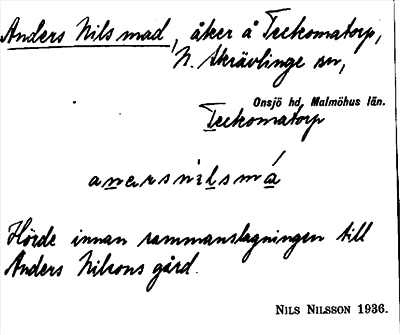 Anders Nils mad, åker å Teckomatorp,
N. Skrävlinge sn,
Onsjö hd, Malmöhus län.
Teckomatorp
anersnilsmá
Hörde innan sammanslagningen till
Anders Nilsons gård.
NILS NILSSON 1936.